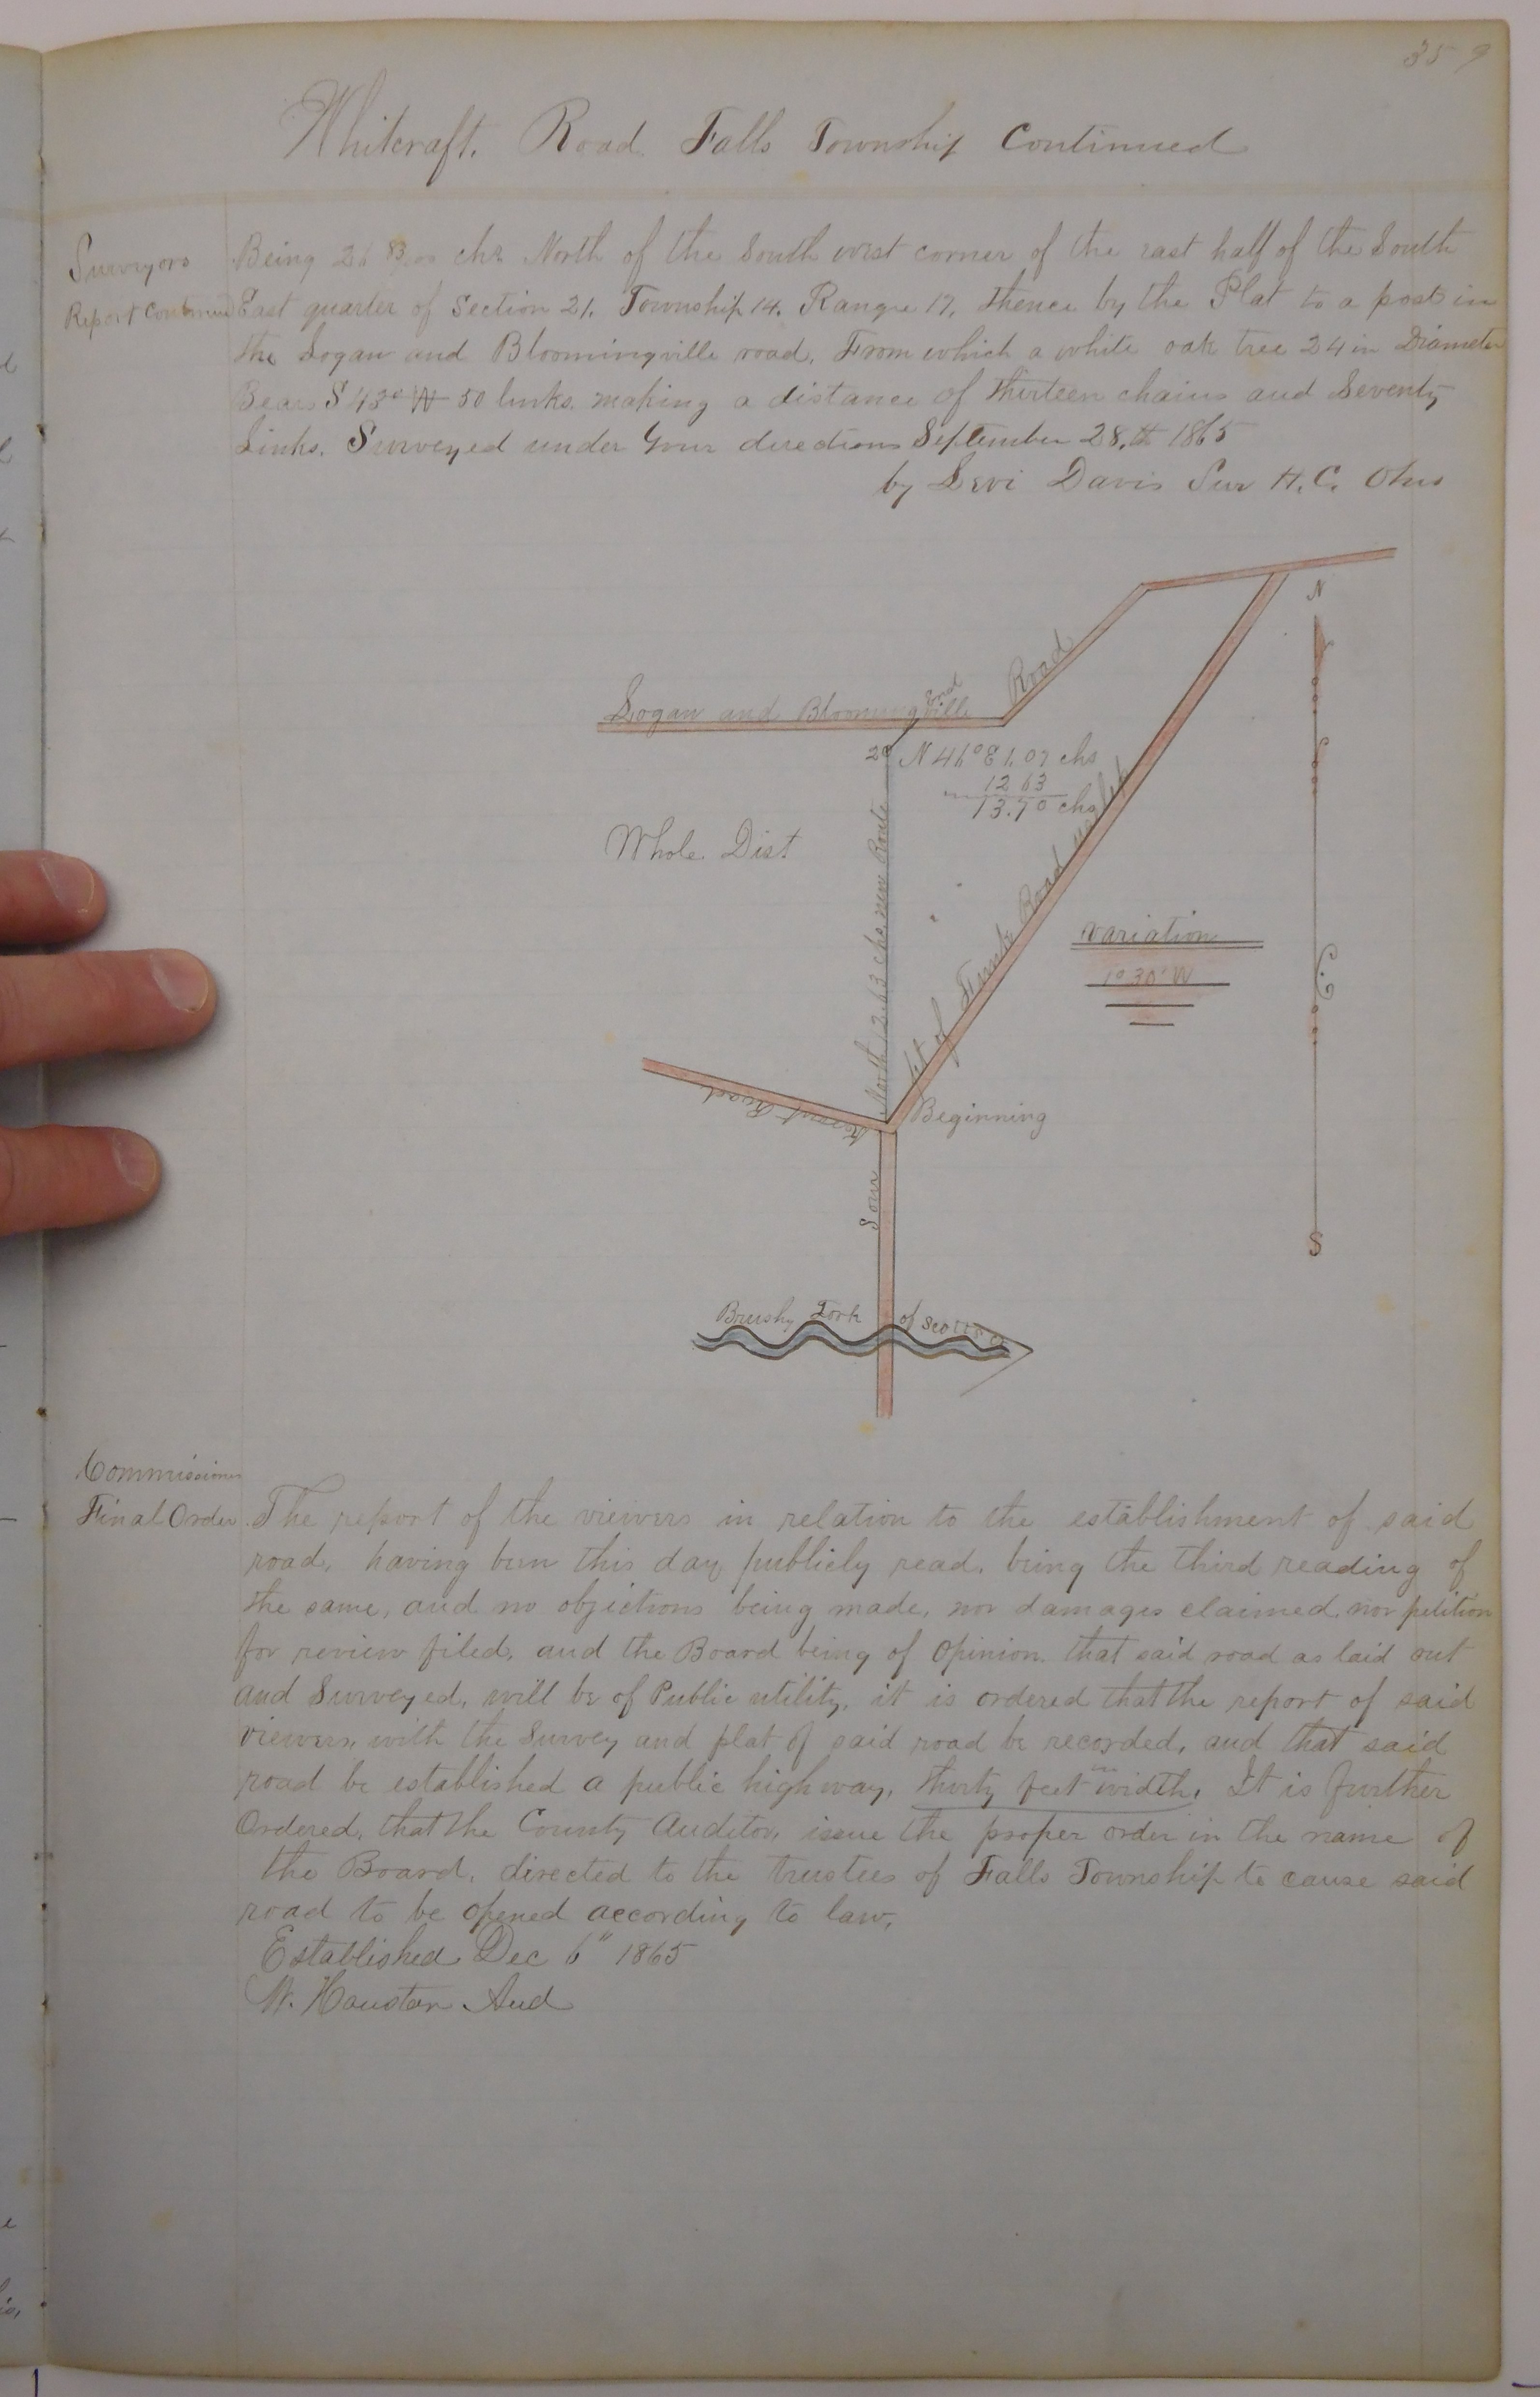 359
Whitcraft. Road Falls Township Continued
Surveyors
Report Continued
Being 26 chs North of the South west corner of the east half of the South
East quarter of Section 21. Township 14. Range 17. thence by the Plat to a post in
the Logan and Bloomingville road. From which a white oak tree 24 in Diameter
Bears S 43° W 50 links. making a distance of thirteen chains and Seventy
Links. Surveyed under Your directions September 28.th 1865
by Levi Davis Sur H. C. Ohio
N
Logan and Bloomingville Road
End
2d N 46° E 1.07 chs
12 63
13.70 chs
Whole Dist
North 12.63 chs new Route
pt of Road
Variation
1° 30' W
Road
Beginning
S
Brushy Fork of Scotts
Commissioners
Final Order
The report of the viewers in relation to the establishment of said
road, having been this day publicly read, being the third reading of
the same, and no objections being made, nor damages claimed, nor petition
for review filed, and the Board being of Opinion. that said road as laid out
and Surveyed, will be of Public utility, it is ordered that the report of said
viewers, with the Survey and plat of said road be recorded, and that said
road be established a public highway, thirty feet in width. It is further
Ordered, that the County Auditor, issue the proper order in the name of
the Board, directed to the trustees of Falls Township to cause said
road to be opened according to law,
Established Dec 6" 1865
W. Houston Aud